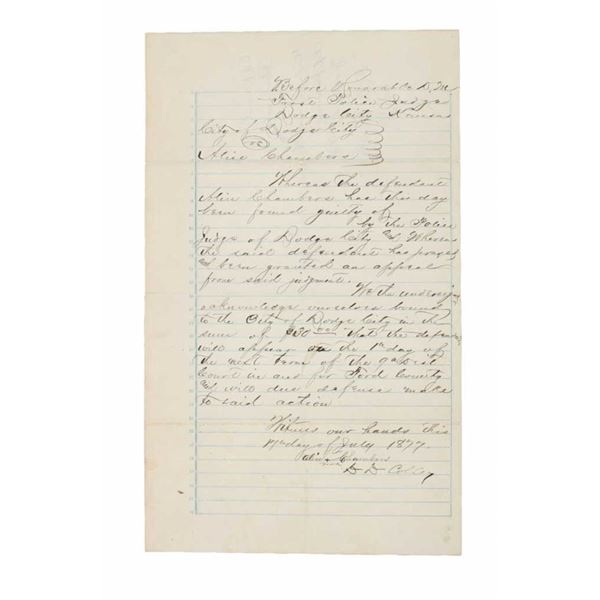 Before Honorable D. M.
Frost Police Judge
Dodge City Kansas
City of Dodge City
vs
Alice Chambers
Whereas the defendant
Alice Chambers has this day
been found guilty of
by the Police
Judge of Dodge City & Whereas
the said defendant has prayed
& been granted an appeal
from said judgment.
We the undersign
acknowledge ourselves bound
to the City of Dodge City in the
sum of $30 00/100 that the defendant
will appear on the 1st day of
the next term of the 9th Dist
Court in and for Ford County
& will due defense make
to said action
Witness our hands this
day of July 1877.
Alice Chambers
D. D. Colley